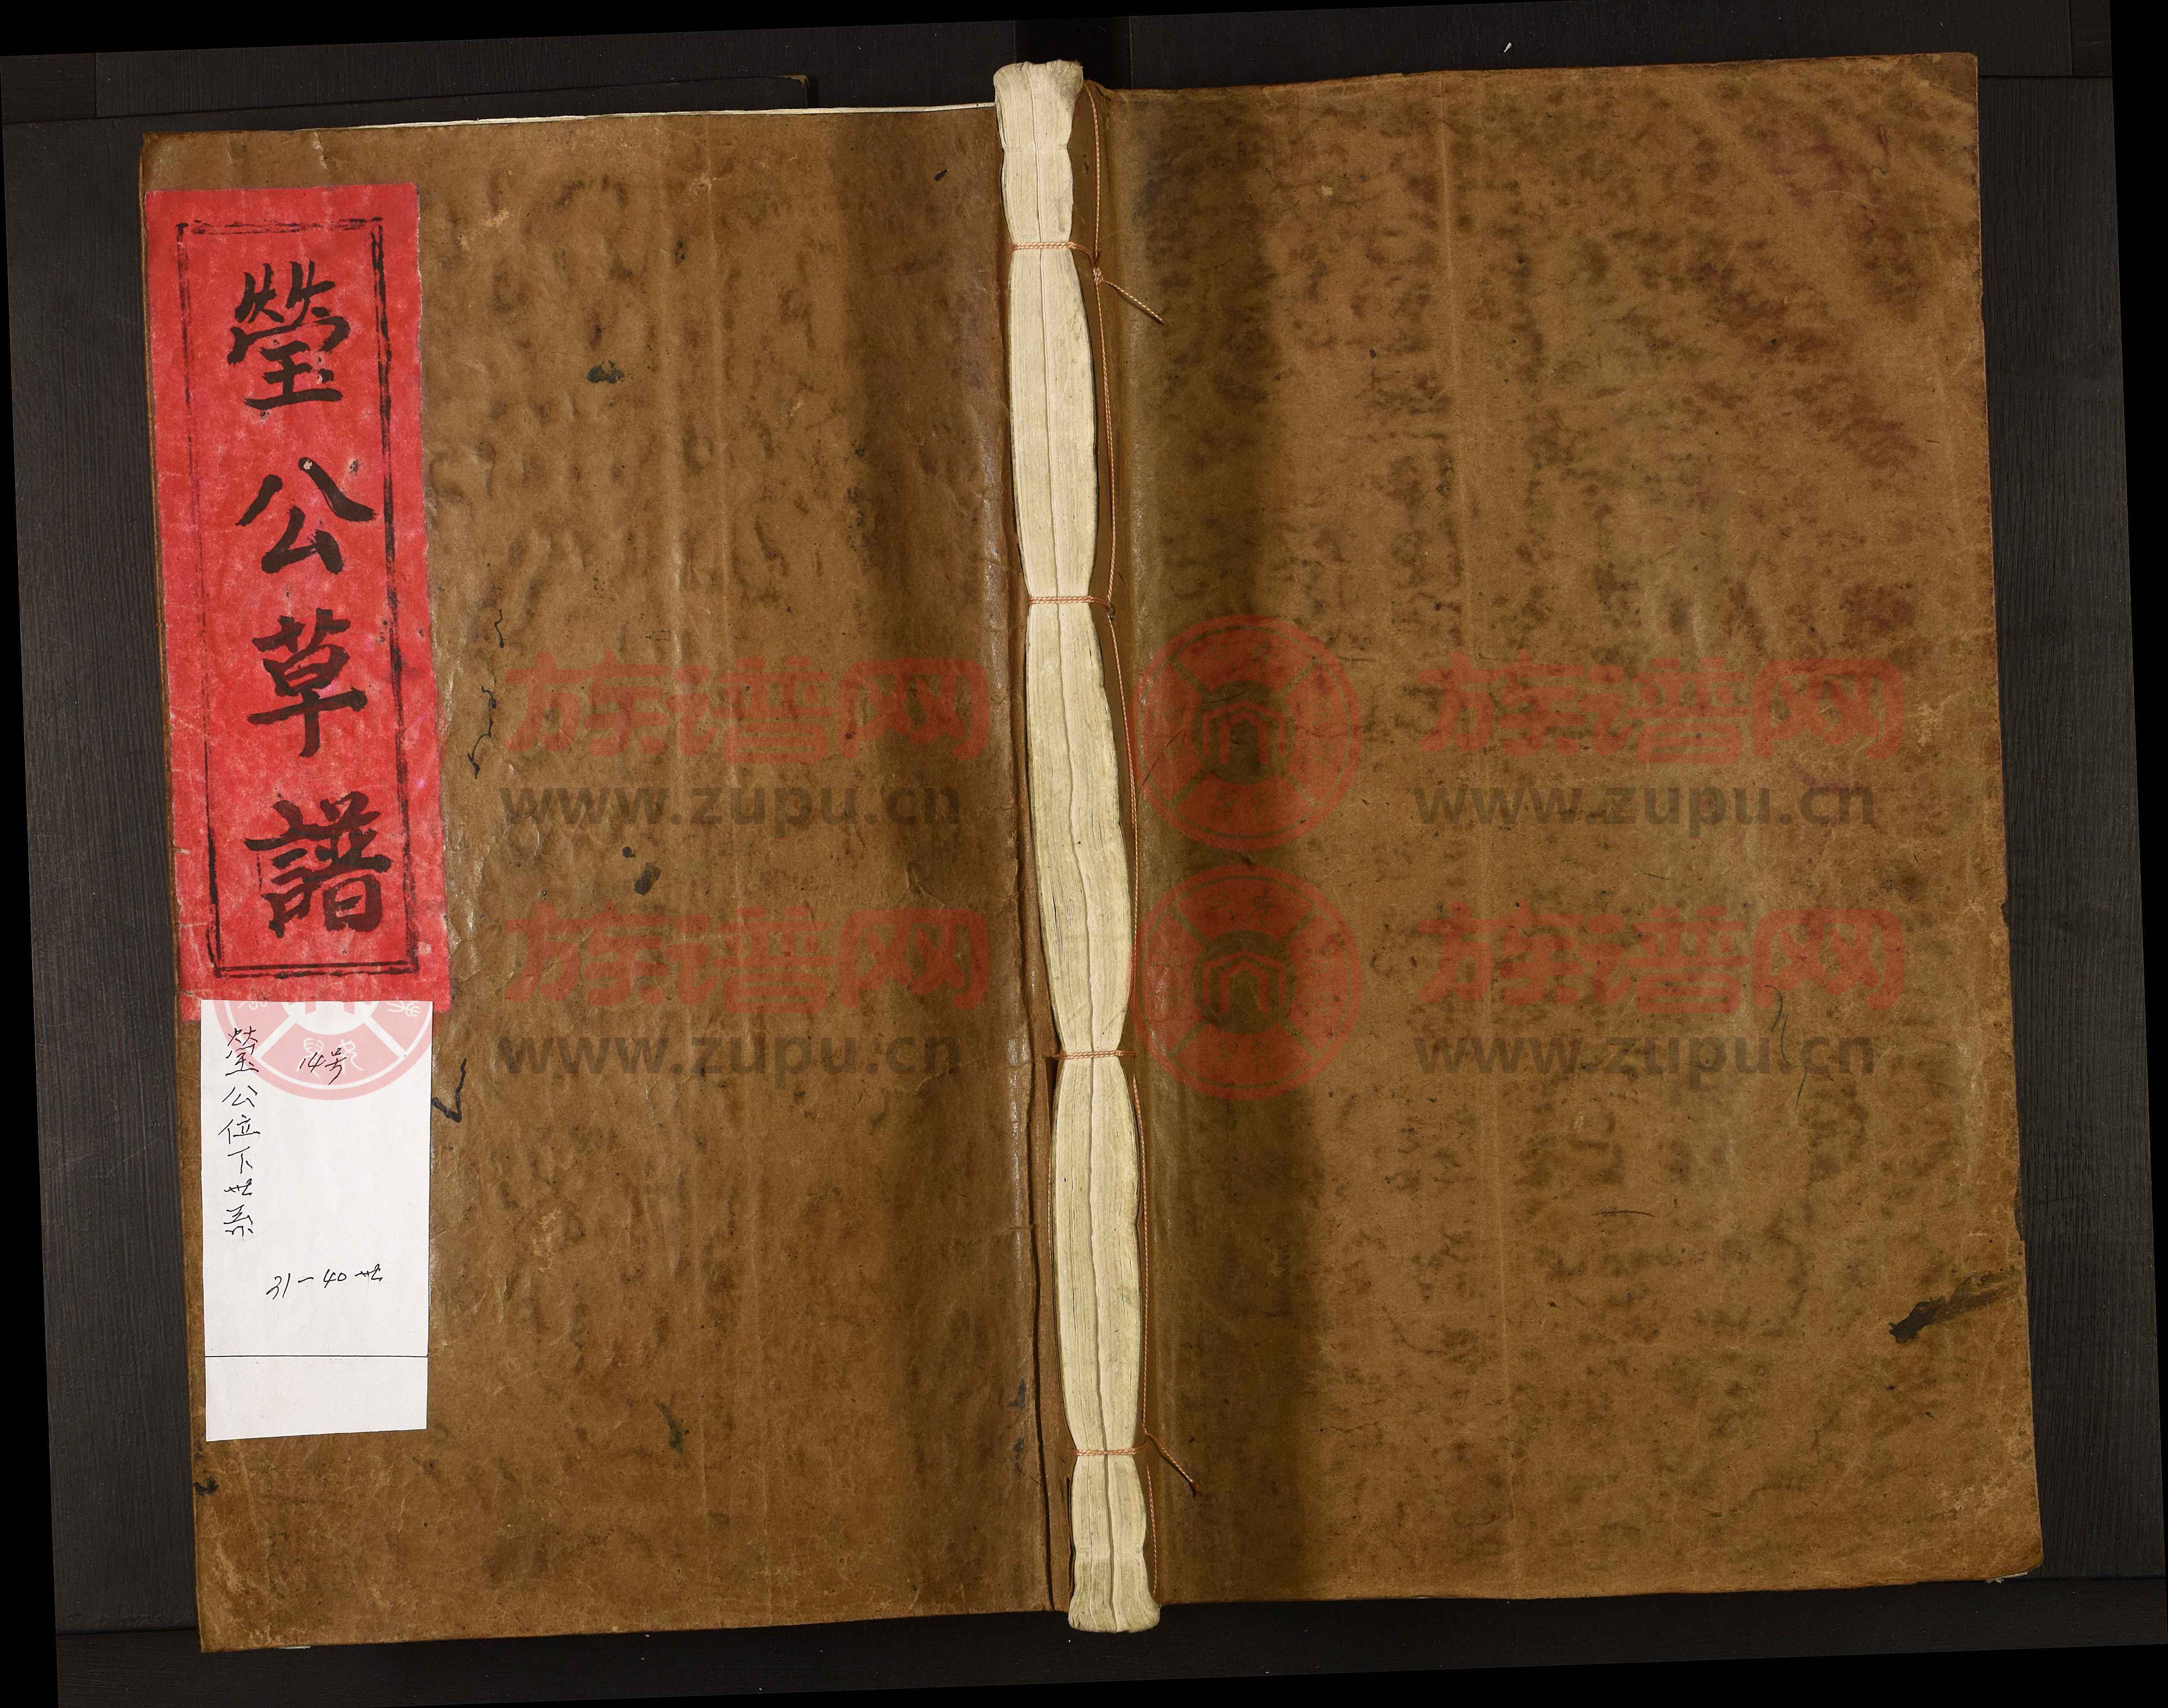 瑩公草譜
14号
瑩公位下世系
31-40世
族谱网
www.zupu.cn
族谱网
www.zupu.cn
族谱网
www.zupu.cn
族谱网
www.zupu.cn